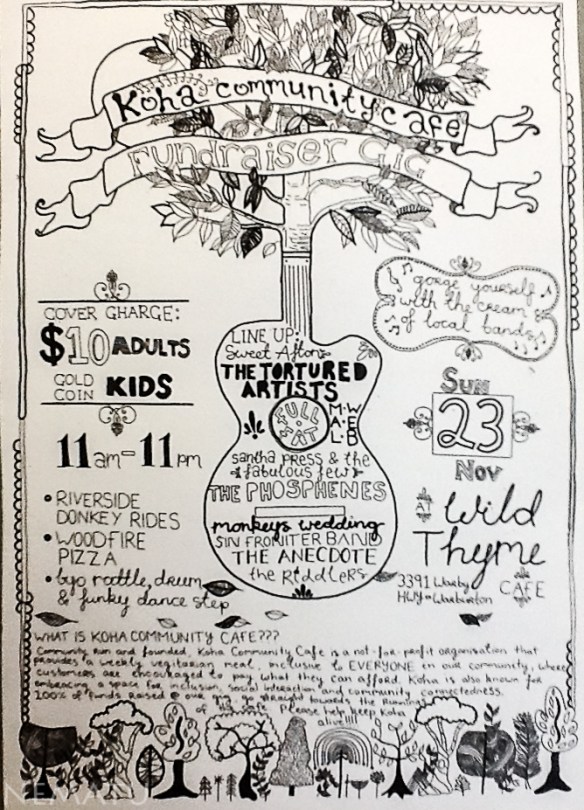 Koha community cafe
Fundraiser GIG
gorge yourself
with the cream
of local bands
COVER CHARGE:
$10 ADULTS
GOLD COIN KIDS
11am-11pm
• RIVERSIDE
DONKEY RIDES
• WOODFIRE
PIZZA
• byo rattle, drum
& funky dance step
LINE UP:
Sweet Afton
THE TORTURED
ARTISTS
FULL
FAT
santha press & the
fabulous few
THE PHOSPHENES
monkeys wedding
SIN FRONITER BAND
THE ANECDOTE
the RIDDLERS
SUN
23
Nov
AT Wild
Thyme
CAFE
3391
HWY Warburton
WHAT IS KOHA COMMUNITY CAFE???
Community Run and founded, Koha Community Cafe is a not-for-profit organisation that
provides a weekly vegitarian meal, inclusive to EVERYONE in our community, where
customers are encouraged to pay what they can afford. Koha is also known for
embracing a space for inclusion, social interaction and community connectedness.
100% of funds raised @ our gig go straight towards the Running
of Please help keep Koha
alive!!!!